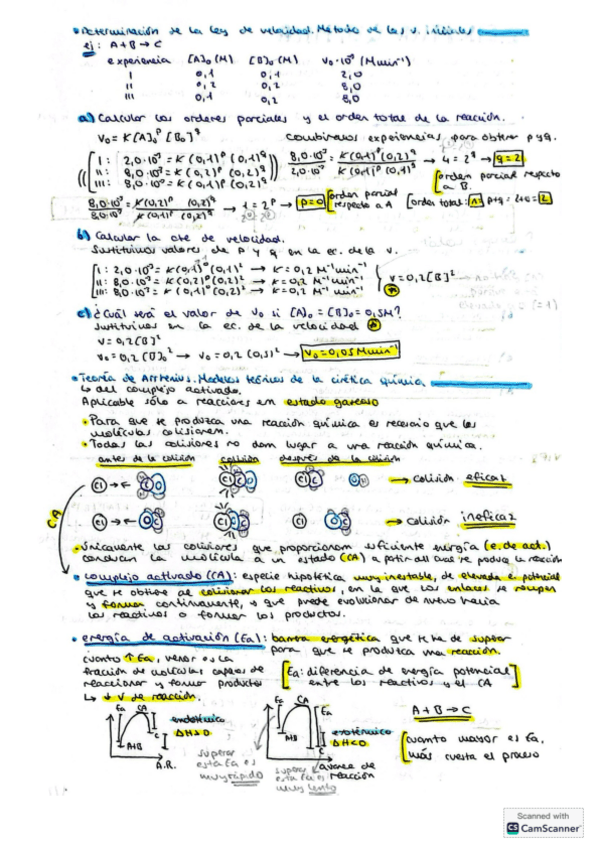 • Determinación de la ley de velocidad. Método de las v. iniciales
ej: A + B → C
experiencia [A]₀ (M) [B]₀ (M) v₀·10³ (M min⁻¹)
I 0,1 0,1 2,0
II 0,2 0,2 8,0
III 0,1 0,2 8,0
a) Calcular los órdenes parciales y el orden total de la reacción.
v₀ = K [A]₀ᵖ [B₀]^q combinamos experiencias para obtener p y q.
I: 2,0·10⁻³ = K (0,1)ᵖ (0,1)^q
II: 8,0·10⁻³ = K (0,2)ᵖ (0,2)^q
III: 8,0·10⁻³ = K (0,1)ᵖ (0,2)^q
8,0·10⁻³ / 2,0·10⁻³ = K (0,1)ᵖ (0,2)^q / K (0,1)ᵖ (0,1)^q → 4 = 2^q → q = 2
orden parcial respecto a B.
8,0·10⁻³ / 8,0·10⁻³ = K (0,2)ᵖ (0,2)^q / K (0,1)ᵖ (0,2)^q → 1 = 2ᵖ → p = 0 [orden parcial respecto a A [orden total: n = p+q = 2+0 = 2
b) Calcular la cte de velocidad.
Sustituimos valores de p y q en la ec. de la v.
I: 2,0·10⁻³ = K (0,1)⁰ (0,1)² → K = 0,2 M⁻¹ min⁻¹
II: 8,0·10⁻³ = K (0,2)⁰ (0,2)² → K = 0,2 M⁻¹ min⁻¹
III: 8,0·10⁻³ = K (0,1)⁰ (0,2)² → K = 0,2 M⁻¹ min⁻¹
v = 0,2 [B]²
c) ¿Cuál será el valor de v₀ si [A]₀ = [B]₀ = 0,5M?
Sustituimos en la ec. de la velocidad
v = 0,2 [B]²
v₀ = 0,2 [B]₀² → v₀ = 0,2 (0,5)² → v₀ = 0,05 M min⁻¹
• Teoría de Arrhenius. Modelos teóricos de la cinética química
↳ del complejo activado.
Aplicable sólo a reacciones en estado gaseoso
• Para que se produzca una reacción química es necesario que las
moléculas colisionen.
• Todas las colisiones no dan lugar a una reacción química.
antes de la colisión colisión después de la colisión
Cl C O Cl C O Cl C O → colisión eficaz
CA
Cl O C Cl C C Cl O C → colisión ineficaz
• Únicamente las colisiones que proporcionan suficiente energía (e. de act.)
conducen la molécula a un estado (CA) a partir del cual se produce la reacción
• complejo activado (CA): especie hipotética muy inestable, de elevada e. potencial
que se obtiene al colisionar los reactivos, en la que los enlaces se rompen
y forman continuamente, y que puede evolucionar de nuevo hacia
los reactivos o formar los productos.
• energía de activación (Ea): barrera energética que se ha de superar
para que se produzca una reacción.
cuanto ↑ Ea, menor es la
fracción de moléculas capaces de
reaccionar y formar productos
↳ ↓ v de reacción.
[Ea: diferencia de energía potencial
entre los reactivos y el CA]
Ea CA
A+B C
endotérmica
ΔH>0
A.R.
superar
esta Ea es
muy rápido
Ea CA Ea
A+B C
exotérmico
ΔH<0
avance de
reacción
superar
esta Ea es
muy lento
A + B → C
cuanto mayor es Ea,
más cuesta el proceso
Scanned with
CS CamScanner